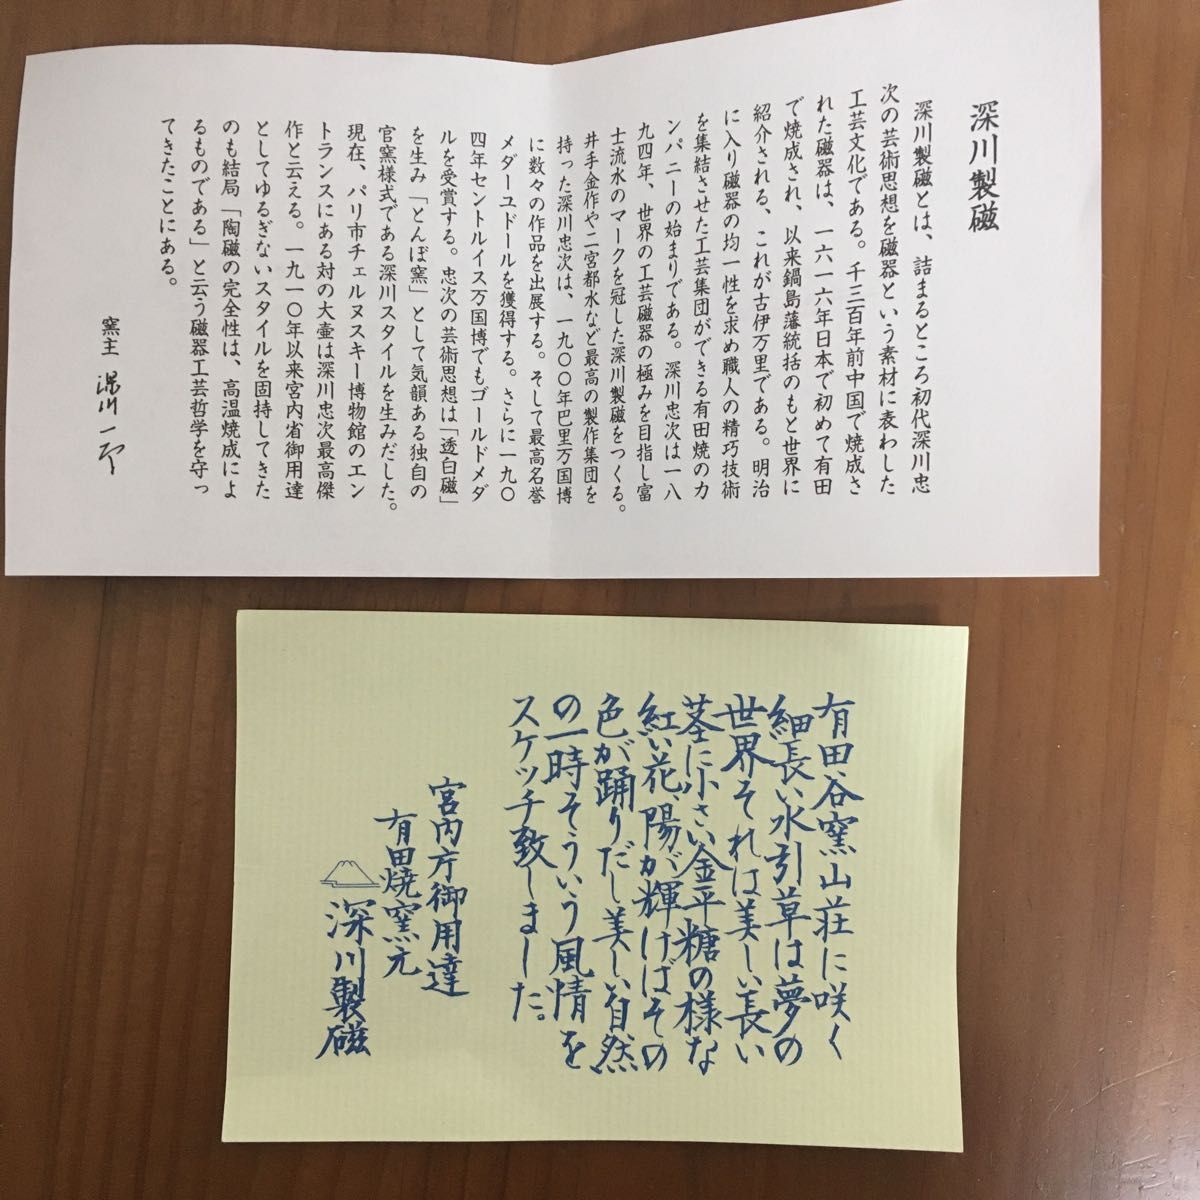 深川製磁
深川製磁とは、詰まるところ初代深川忠
次の芸術思想を磁器という素材に表わした
工芸文化である。千三百年前中国で焼成さ
れた磁器は、一六一六年日本で初めて有田
で焼成され、以来鍋島藩統括のもと世界に
紹介される、これが古伊万里である。明治
に入り磁器の均一性を求め職人の精巧技術
を集結させた工芸集団ができる有田焼のカ
ンパニーの始まりである。深川忠次は一八
九四年、世界の工芸磁器の極みを目指し富
士流水のマークを冠した深川製磁をつくる。
井手金作や二宮都水など最高の製作集団を
持った深川忠次は、一九〇〇年巴里万国博
に数々の作品を出展する。そして最高名誉
メダーユドールを獲得する。さらに一九〇
四年セントルイス万国博でもゴールドメダ
ルを受賞する。忠次の芸術思想は「透白磁」
を生み「とんぼ窯」として気韻ある独自の
官窯様式である深川スタイルを生みだした。
現在、パリ市チェルヌスキー博物館のエン
トランスにある対の大壷は深川忠次最高傑
作と云える。一九一〇年以来宮内省御用達
としてゆるぎないスタイルを固持してきた
のも結局「陶磁の完全性は、高温焼成によ
るものである」と云う磁器工芸哲学を守っ
てきたことにある。
窯主 深川一
有田谷窯山荘に咲く
細長い水引草は夢の
世界それは美しい長い
茎に小さい金平糖の様な
紅い花、陽が輝けばその
色が踊りだし美しい自然
の一時そういう風情を
スケッチ致しました。
宮内庁御用達
有田焼窯元
深川製磁